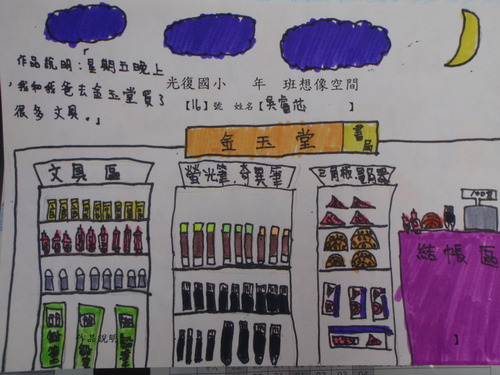 作品說明:「星期五晚上
,我和我爸去金玉堂買了
很多文具。」
光復國小 年 班想像空間
【16】號 姓名【吳 芯 】
金玉堂 書局
文具區
螢光筆、奇異筆
三角板、量角器
100元
結帳區
作品說明
】